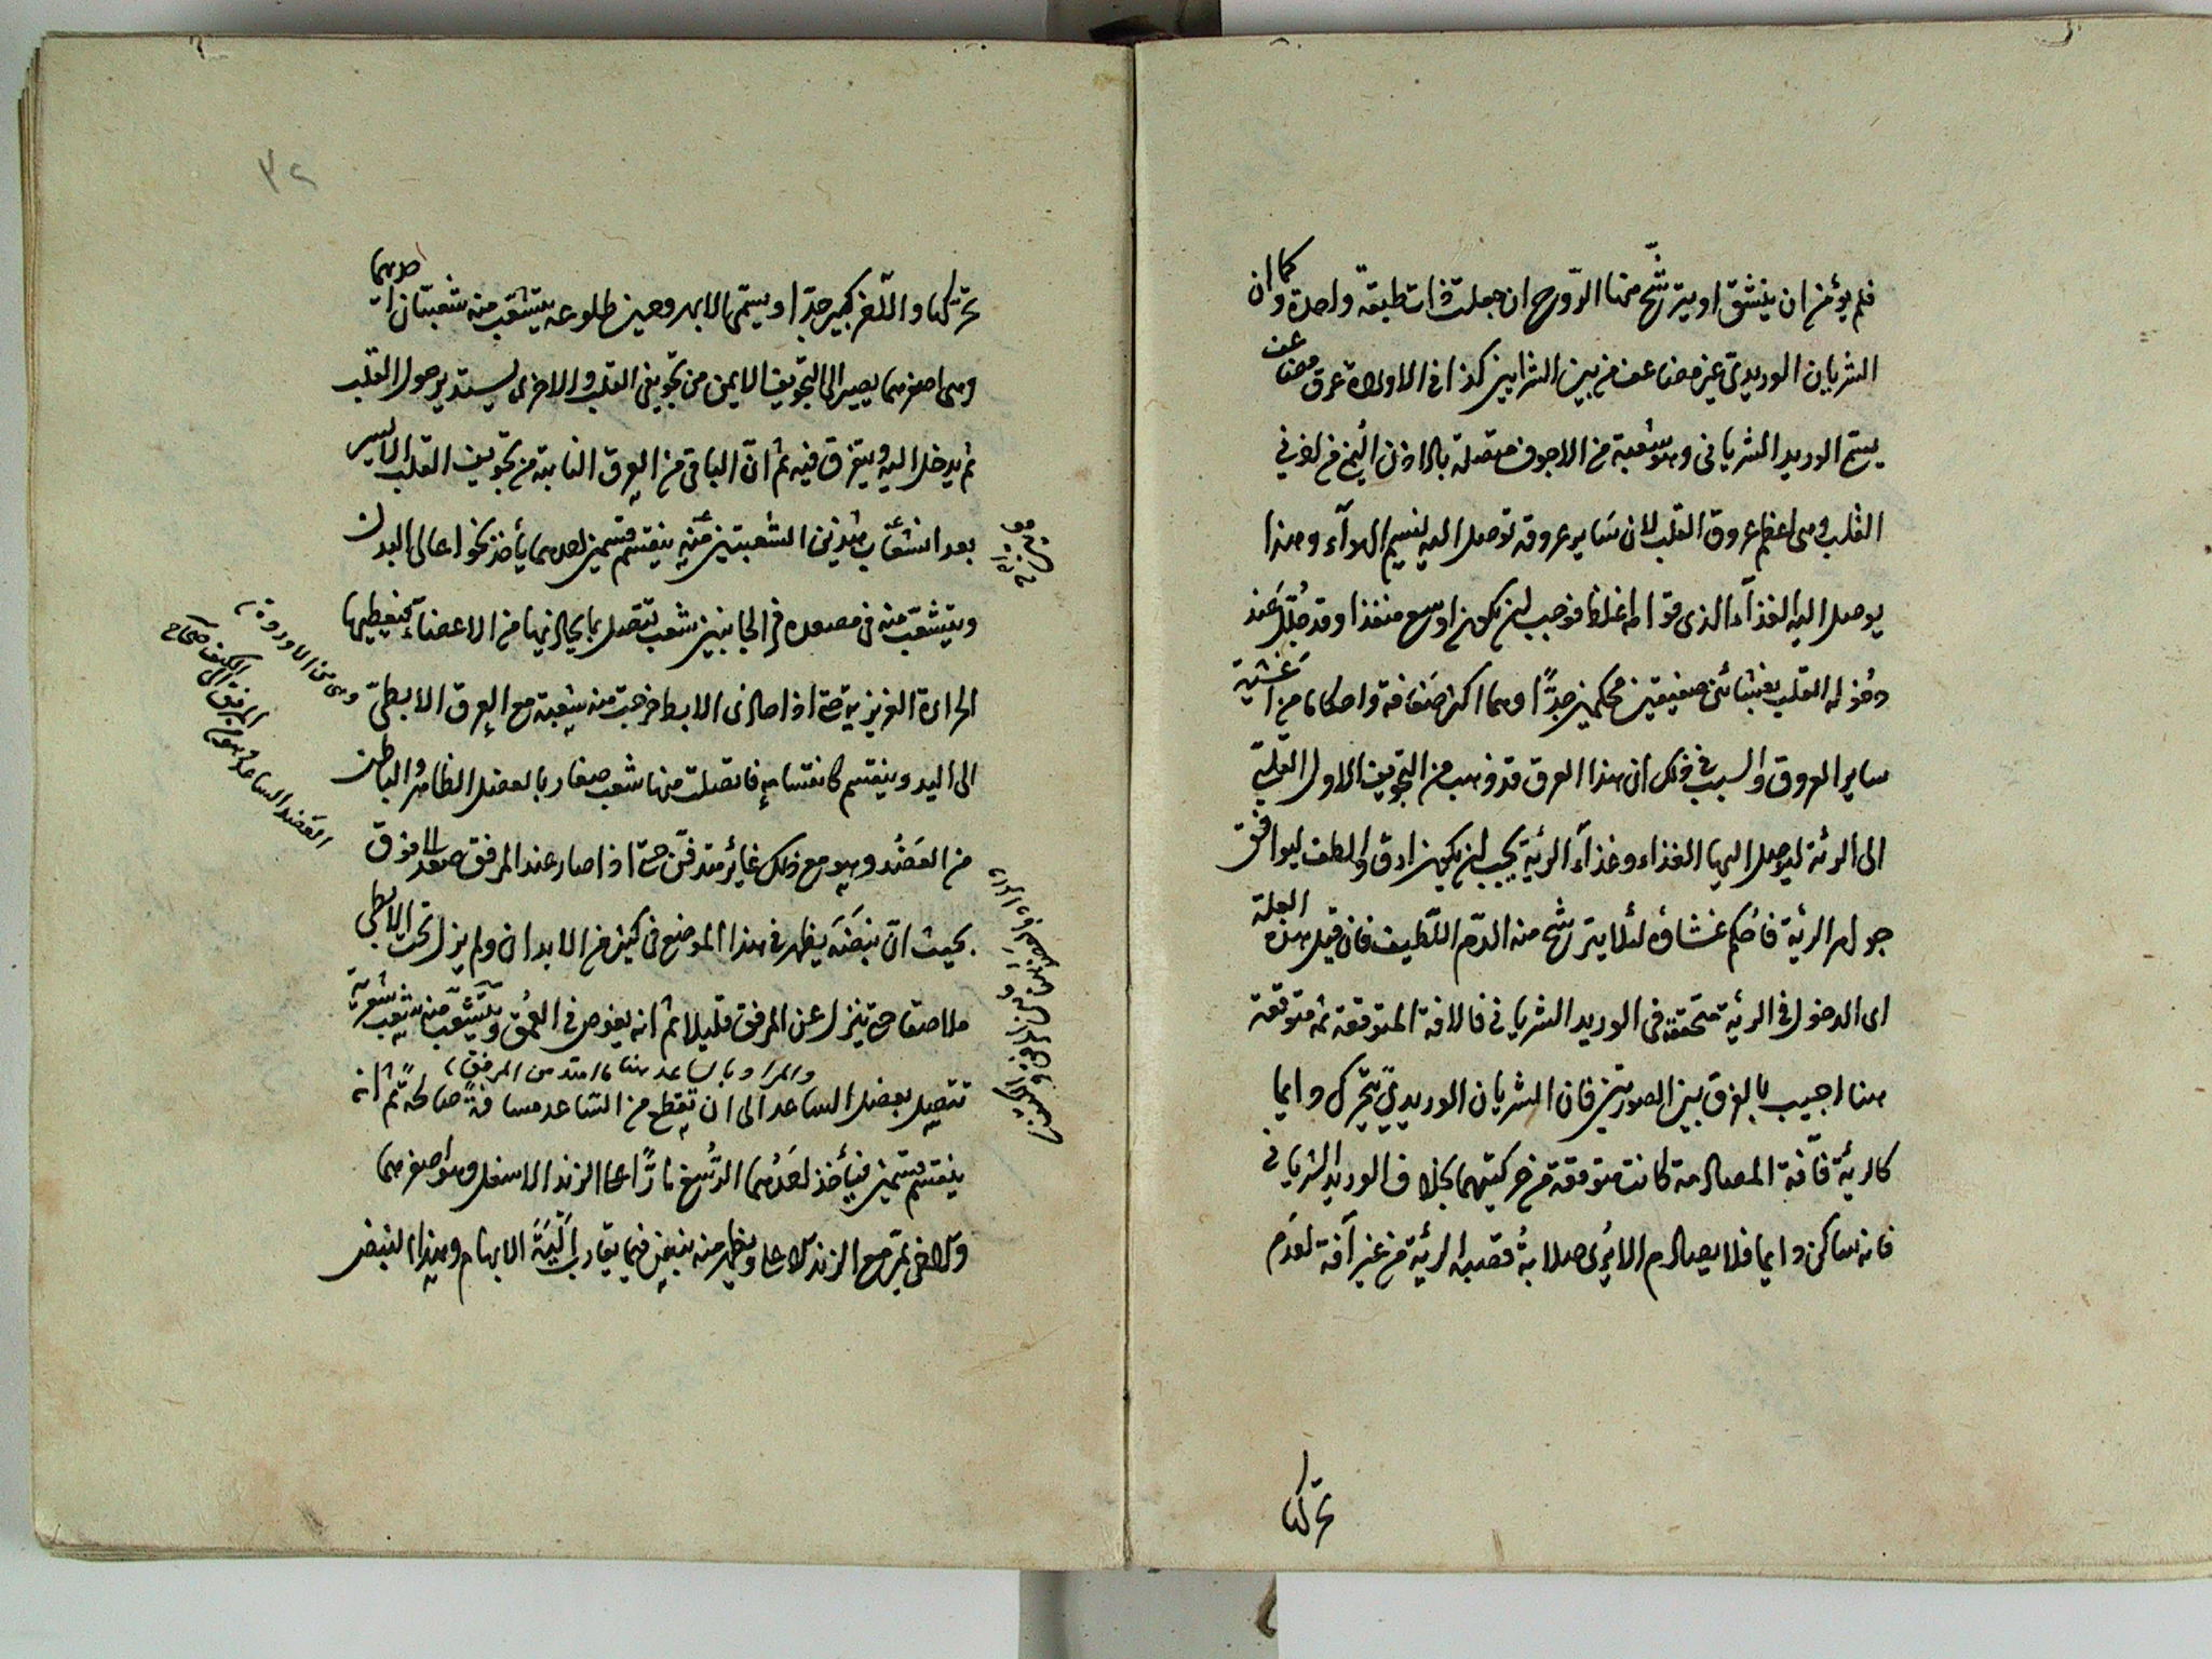 فلم يؤمن ان ينشق او يترشح منها الروح ان جعلت ذات طبقة واحدة وكما ان
الشريان الوريدي غير مضاعف من بين الشرايين كذا في الاوردة عرق مضاعف
يسمى الوريد الشرياني وهو شعبة من الاجوف متصلة بالاذن اليمنى من اذني
القلب وهي اعظم عروق القلب لان ساير عروقه توصل اليه لنسيم الهوآء وهذا
يوصل اليه الغذآء الذي قوامه اغلظ فوجب ان يكون اوسع منفذا وقد جلل عند
دخوله القلب بغشائين صفيقين محكمين جدًّا وهما اكثر صفاقة واحكاما من اغشية
ساير العروق والسبب في ذلك ان هذا العرق قد ذهب من التجويف الاول القلبي
الى الرئة ليوصل اليها الغذاء وغذآء الرئة يجب ان يكون ادق والطف ليوافق
جوهر الرئة فأحكم غشاؤه لئلا يترشح منه الدم اللطيف فان قيل هذه العلة
اى الدخول في الرئة متحققة في الوريد الشرياني فالافة المتوقعة ثمه متوقعة
هنا اجيب بالفرق بين الصورتين فان الشريان الوريدي يتحرك دايما
كالرئة فآفة المصادمة كانت متوقعة من حركتهما بخلاف الوريد الشرياني
فانه ساكن دايما فلا يصادم الا يرى صلابة قصبة الرئة من غير آفة لعدم
تحركها
٣٢
تحركها والآخر كبير جدا ويسمى الابهر وحين طلوعه يتشعب منه شعبتان احديهما
وهى اصغرهما يصير الى التجويف الايمن من تجويفى القلب والاخرى يستدير حول القلب
ثم يدخل اليه ويتفرق فيه ثم ان الباقى من العرق النابتة من تجويف القلب الايسر
بعد انشعاب هذين الشعبتين منه ينقسم قسمين احدهما يأخذ نحو اعالى البدن
ويتشعب منه في مصعده من الجانبين شعب تتصل بما يحاذيها من الاعضآء فيعطيها
الحرارة الغريزية حتى اذا صار الى الابط خرجت منه شعبة مع العرق الابطى
الى اليد وينقسم كانقسامه فاتصلت منها شعب صغار بالعضل الظاهر والباطن
من العضد وهو مع ذلك غاير متدفن حتى اذا صار عند المرفق صعد الى فوق
بحيث ان نبضه يظهر في هذا الموضع في كثير من الابدان ولم يزل تحت الابطى
ملاصقا حتى ينزل عن المرفق قليلا ثم انه يغوص في العمق ويتشعب منه شعب شعرية
والمراد بالساعد هنا ما امتد من المرفق
تتصل بعضل الساعد الى ان يقطع من الساعد مسافة صالحة ثم انه
ينقسم قسمين فيأخذ احدهما الى الرسغ مارًّا على الزند الاسفل وهو اصغرهما
والاخر يمر مع الزند الاعلى ويظهر منه نبض فيما يقارب الية الابهام وهذا النبض
وهى من الاوردة
العضد الساعد هو ما بين المرفق الى الكتف صحاح